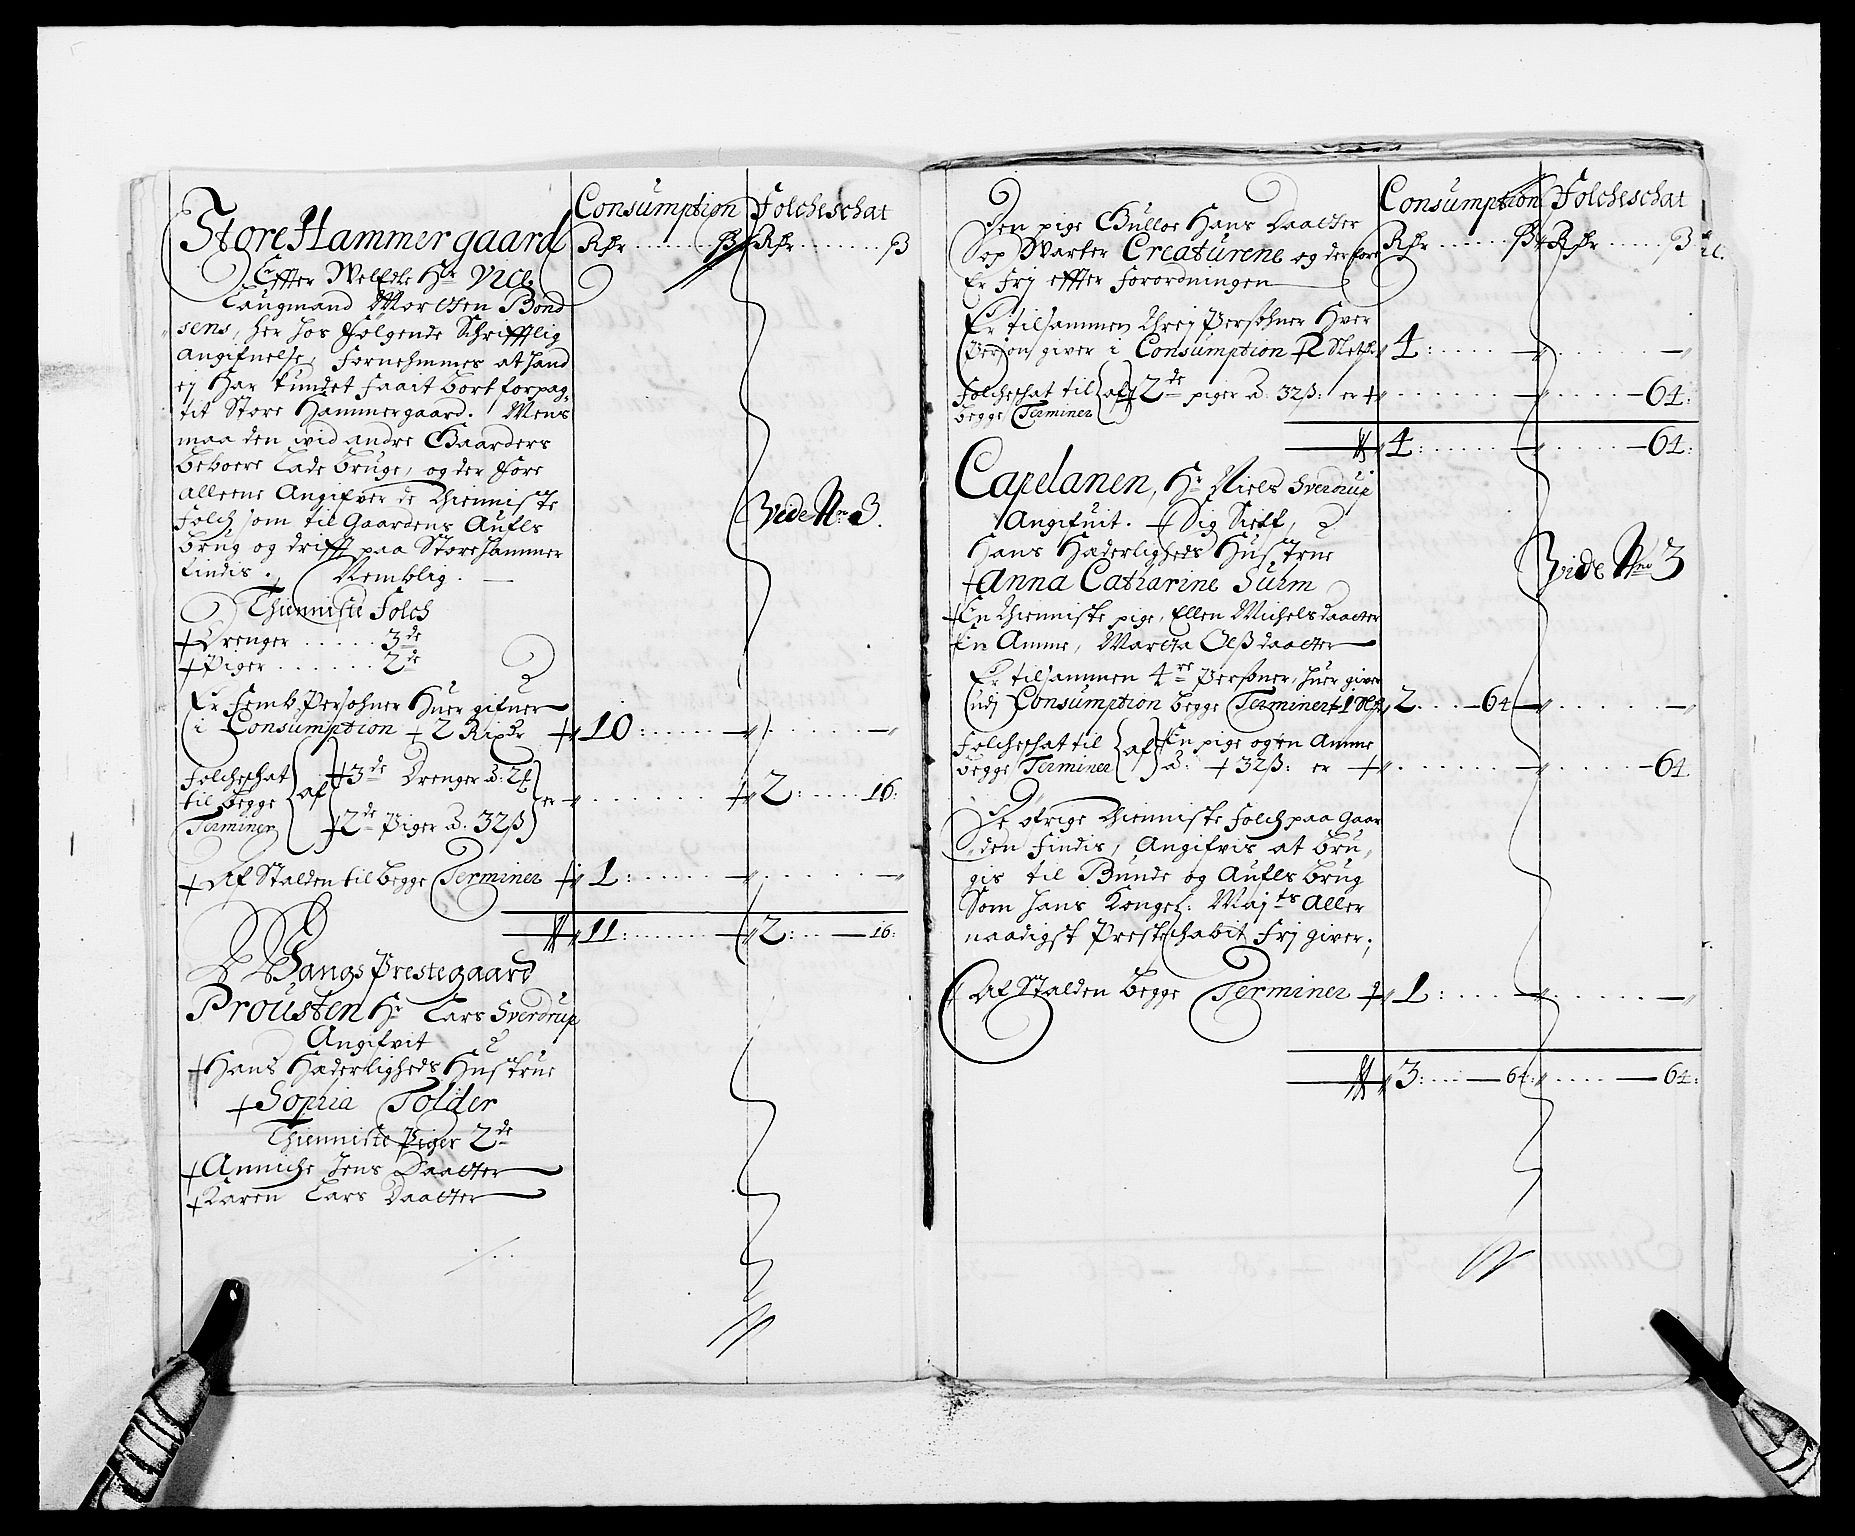 Consumption Folcheschat
Rdr ß Rdr ß
Store Hammer gaard
Effter Weledle Hr Vice
Laugmand Mortten Bond
sens, her hos følgende Schrifftlig
Angifvelse, fornehmmes at hand
ej Har kundet faait bort forpag,
tit Store Hammergaard. Mens
maa den wid andre Gaarders
Beboere lade bruge, og der fore
alleene Angifver de Thienniste
Folch som til Gaardens Aufls
brug og drifft paa Store Hammer
findis. Nemblig.
Vide No 3.
Thienniste Folch
Drenger ...... 3de
Piger ...... 2de
Er femb Persohner Huer gifuer
i Consumption 2 Rixdr 10: — —
Folcheschat til begge Terminer af 3de Drenger á 2
2de Piger á. 32ß er 2: 16:
Af Stalden til begge Terminer 1: — —
11: — 2: — 16:
Bangs Prestegaard
Prousten Hr Lars Sverdrup
Angifvit
Hans Hæderligheds Hustrue
Sophia Tolder
Thienniste Piger 2de
Anniche Jens Daatter
Karen Lars Daatter
Consumption Folcheschat
Rdr ß Rdr ß
Den pige Gulloe Hans Daatter
Sop Warter Creaturene og der fore
Er frj effter forordningen
Er tilsammen Threj Persohner Hver
Person giver i Consumption 2 Sletdr 4: — —
Folcheschat til begge Terminer af 2de piger á. 32ß: er — 64:
4: — 64:
Capelanen, Hr Niels Sverdrup
Angifuit. Sig Sielf,
Hans Hæderligheds Hustrue
Anna Catharine Surm
Vide No 3
En Thienniste pige, Ellen Michels daatter
En Amme, Martta Olß daatter
Er tilsammen 4re Persohner, huer giver
udj Consumption begge Terminer 1 2. — 64 — —
Folcheschat til begge Terminer af En pige og en Amme
á: 32ß: er — 64
De øfrige Thienniste folch paa Gaar
den findis, Angifvis at bru,
gis til Bunde og Aufls brug
Som hans Kongel: Majts Aller
naadigst Presteschabit frj giver;
Af Stalden begge Terminer 1: — —
3: — 64: — 64: